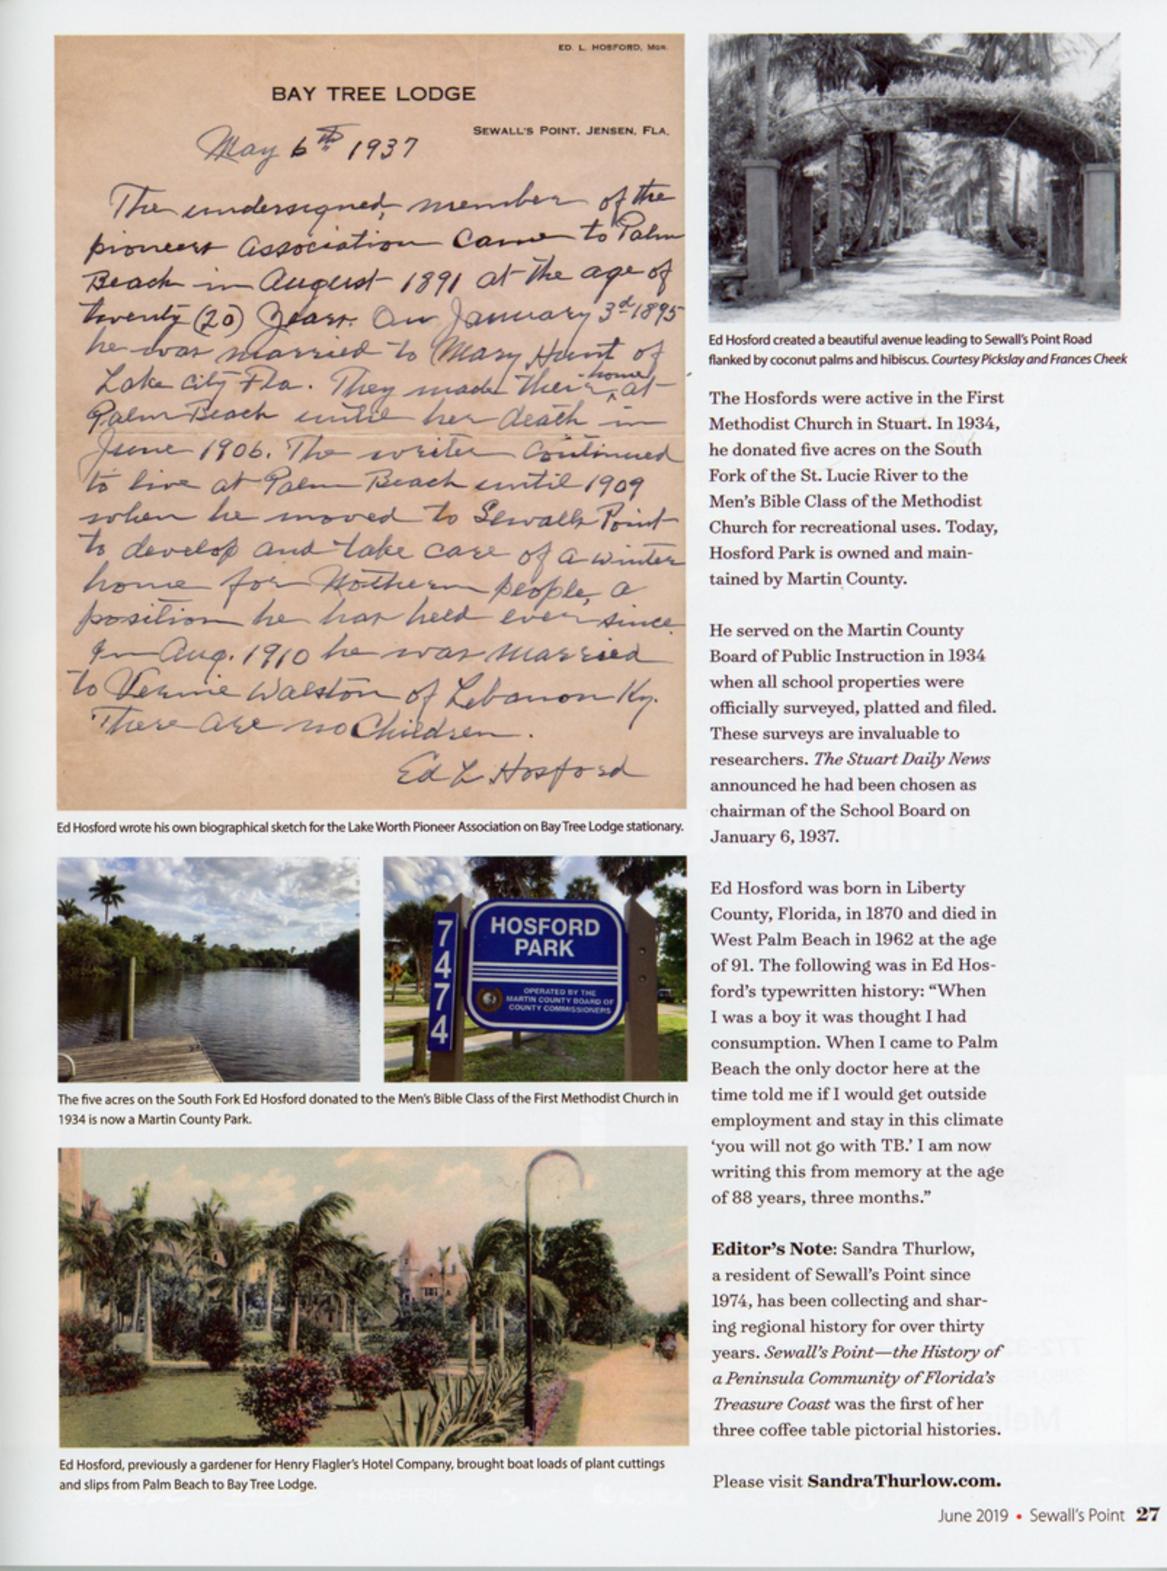 ED. L. HOSFORD, MGR.
BAY TREE LODGE
SEWALL'S POINT, JENSEN, FLA.
May 6th 1937
The undersigned, member of the
pioneer Association came to Palm
Beach in August 1891 at the age of
twenty (20) years. On January 3d 1895
he was married to Mary Hunt of
Lake City Fla. They made their home at
Palm Beach until her death in
June 1906. The writer continued
to live at Palm Beach until 1909
when he moved to Sewalls Point
to develop and take care of a winter
home for Nothern people, a
position he has held ever since.
In Aug. 1910 he was married
to Vernie Walston of Lebanon Ky.
There are no Children.
Ed L Hosford
Ed Hosford wrote his own biographical sketch for the Lake Worth Pioneer Association on Bay Tree Lodge stationary.
7474
HOSFORD
PARK
OPERATED BY THE
MARTIN COUNTY BOARD OF
COUNTY COMMISSIONERS
The five acres on the South Fork Ed Hosford donated to the Men's Bible Class of the First Methodist Church in
1934 is now a Martin County Park.
Ed Hosford, previously a gardener for Henry Flagler's Hotel Company, brought boat loads of plant cuttings
and slips from Palm Beach to Bay Tree Lodge.
Ed Hosford created a beautiful avenue leading to Sewall's Point Road
flanked by coconut palms and hibiscus. Courtesy Pickslay and Frances Cheek
The Hosfords were active in the First
Methodist Church in Stuart. In 1934,
he donated five acres on the South
Fork of the St. Lucie River to the
Men's Bible Class of the Methodist
Church for recreational uses. Today,
Hosford Park is owned and main-
tained by Martin County.
He served on the Martin County
Board of Public Instruction in 1934
when all school properties were
officially surveyed, platted and filed.
These surveys are invaluable to
researchers. The Stuart Daily News
announced he had been chosen as
chairman of the School Board on
January 6, 1937.
Ed Hosford was born in Liberty
County, Florida, in 1870 and died in
West Palm Beach in 1962 at the age
of 91. The following was in Ed Hos-
ford's typewritten history: "When
I was a boy it was thought I had
consumption. When I came to Palm
Beach the only doctor here at the
time told me if I would get outside
employment and stay in this climate
'you will not go with TB.' I am now
writing this from memory at the age
of 88 years, three months."
Editor's Note: Sandra Thurlow,
a resident of Sewall's Point since
1974, has been collecting and shar-
ing regional history for over thirty
years. Sewall's Point—the History of
a Peninsula Community of Florida's
Treasure Coast was the first of her
three coffee table pictorial histories.
Please visit SandraThurlow.com.
June 2019 • Sewall's Point 27